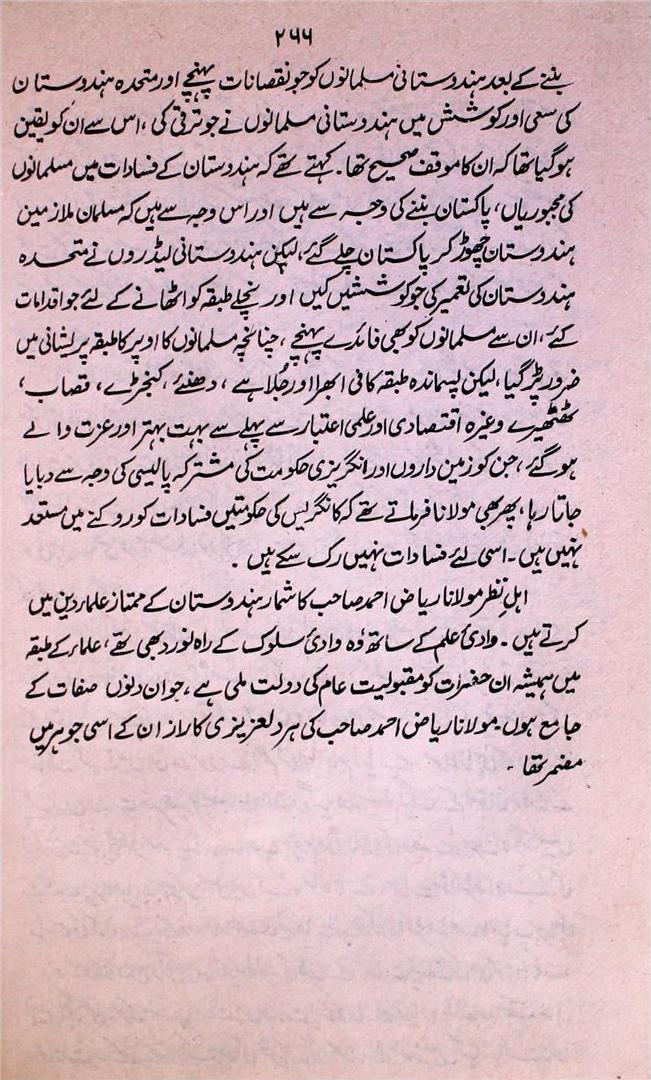 ۲۶۶
بننے کے بعد ہندوستانی مسلمانوں کو جو نقصانات پہنچے اور متحدہ ہندوستان
کی سعی اور کوشش میں ہندوستانی مسلمانوں نے جو ترقی کی ، اس سے ان کو یقین
ہوگیا تھا کہ ان کا موقف صحیح تھا ۔ کہتے تھے کہ ہندوستان کے فسادات میں مسلمانوں
کی مجبوریاں ، پاکستان بننے کی وجہ سے ہیں اور اس وجہ سے ہیں کہ مسلمان ملازمین
ہندوستان چھوڑ کر پاکستان چلے گئے ، لیکن ہندوستانی لیڈروں نے متحدہ
ہندوستان کی تعمیر کی جو کوششیں کیں اور نچلے طبقہ کو اٹھانے کے لئے جو اقدامات
کئے ، ان سے مسلمانوں کو بھی فائدے پہنچے ، چنانچہ مسلمانوں کا اوپر کا طبقہ پریشانی میں
ضرور پڑ گیا ، لیکن پسماندہ طبقہ کافی ابھرا اور جُلا ہے ، دھنئے ، کنجڑے ، قصاب ،
ٹھٹھیرے وغیرہ اقتصادی اور علمی اعتبار سے پہلے سے بہت بہتر اور عزت والے
ہوگئے ، جن کو زمین داروں اور انگریزی حکومت کی مشترکہ پالیسی کی وجہ سے دبایا
جاتا رہا ، پھر بھی مولانا فرماتے تھے کہ کانگریس کی حکومتیں فسادات کو روکنے میں مستعد
نہیں ہیں ۔ اسی لئے فسادات نہیں رک سکے ہیں ۔
اہل نظر مولانا ریاض احمد صاحب کا شمار ہندوستان کے ممتاز علماء دین میں
کرتے ہیں ۔ وادئ علم کے ساتھ وُہ وادئ سلوک کے راہ نورد بھی تھے ، علماء کے طبقہ
میں ہمیشہ ان حضرات کو مقبولیت عام کی دولت ملی ہے ، جو ان دونوں صفات کے
جامع ہوں ۔ مولانا ریاض احمد صاحب کی ہردلعزیزی کا راز ان کے اسی جوہر میں
مضمر تھا ۔